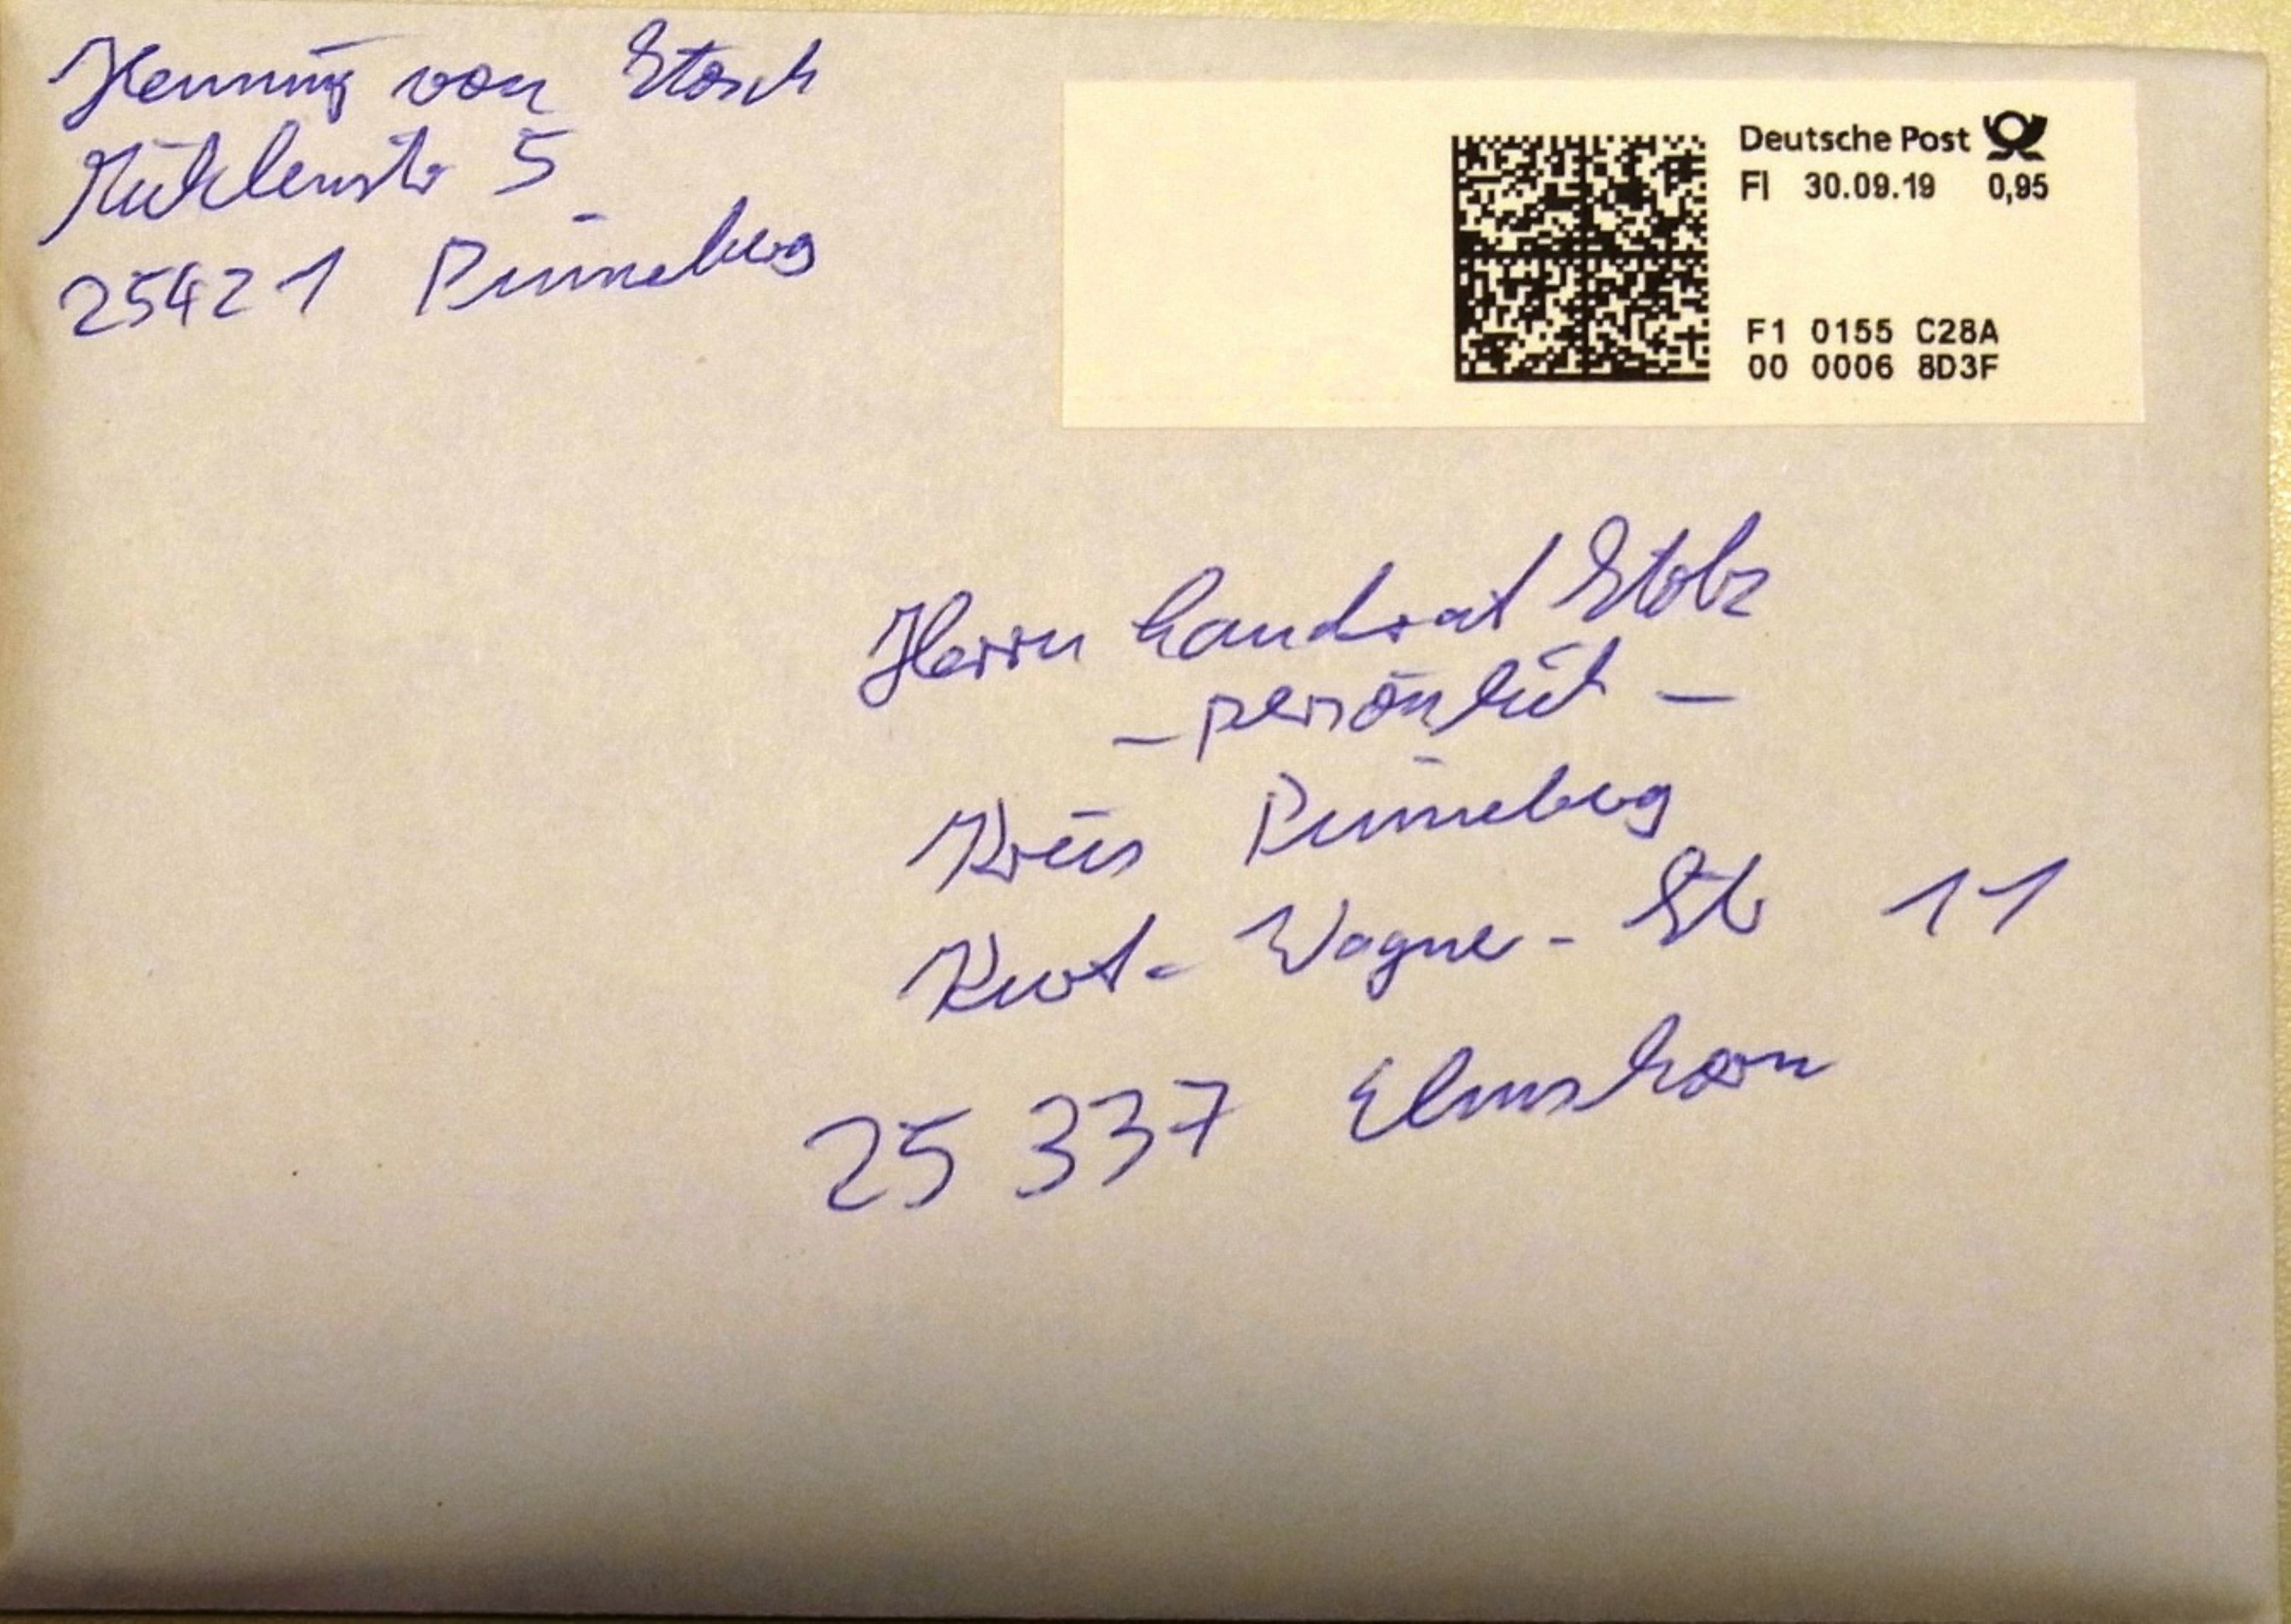 Henning von Stosch
Mühlenstr 5
25421 Pinneberg
Deutsche Post
FI 30.09.19 0,95
F1 0155 C28A
00 0006 8D3F
Herrn Landrat Stolz
- persönlich -
Kreis Pinneberg
Kurt-Wagner-Str 11
25 337 Elmshorn